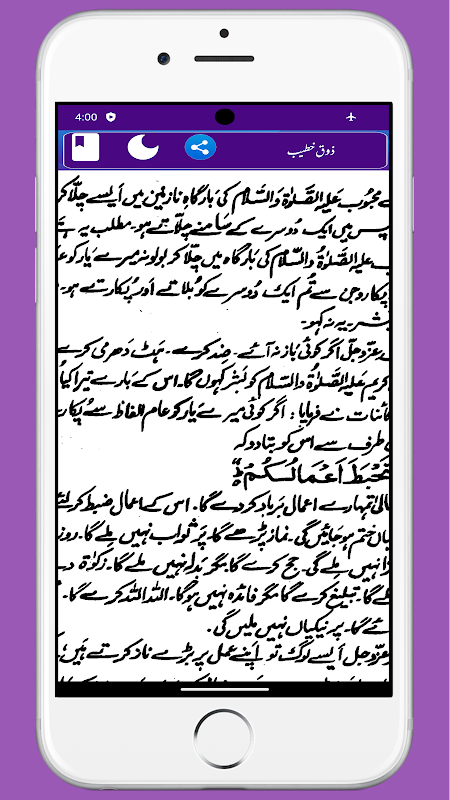 4:00
ذوق خطیب
محبوب علیہ الصلوٰۃ والسلام کی بارگاہِ نازنین میں ایسے چلّا کر
پس میں ایک دوسرے کے سامنے چلّاتے ہو۔ مطلب یہ ہے
علیہ الصلوٰۃ والسلام کی بارگاہ میں چلّا کر بولو نہ میرے یار کو
پکارو جن سے تم ایک دوسرے کو بلاتے اور پکارتے ہو۔
بشر یہ نہ کہو۔
عزوجل اگر کوئی باز نہ آئے۔ ضد کرے۔ ہٹ دھرمی کرے
کریم علیہ الصلوٰۃ والسلام کو بشر کہوں گا۔ اس کے بارے تیرا کیا
کائنات نے فرمایا: اگر کوئی میرے یار کو عام الفاظ سے پکارے
طرف سے اس کو بتا دو کہ
تَحْبَطَ اَعْمَالُکُمْ
تمہارے اعمال برباد کر دے گا۔ اس کے اعمال ضبط کر لئے
ختم ہو جائیں گی۔ نماز پڑھے گا۔ پر ثواب نہیں ملے گا۔ روزہ
نہیں ملے گی۔ حج کرے گا مگر بدلہ نہیں ملے گا۔ زکوٰۃ دے
گا۔ تبلیغ کرے گا مگر فائدہ نہیں ہو گا۔ اللہ اللہ کرے گا۔
گا۔ پر نیکیاں نہیں ملیں گی۔
عزوجل ایسے لوگ تو اپنے عمل پر بڑے ناز کرتے ہیں؛